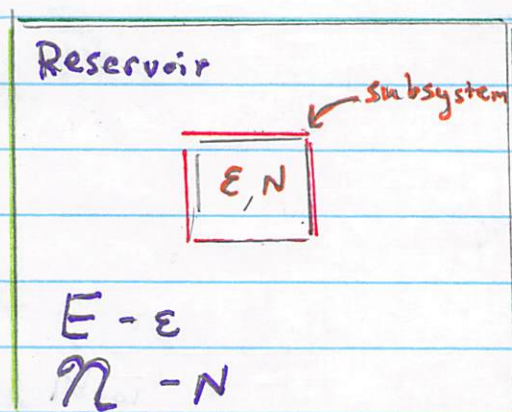 Reservoir
subsystem
ε, N
E - ε
𝓝 - N